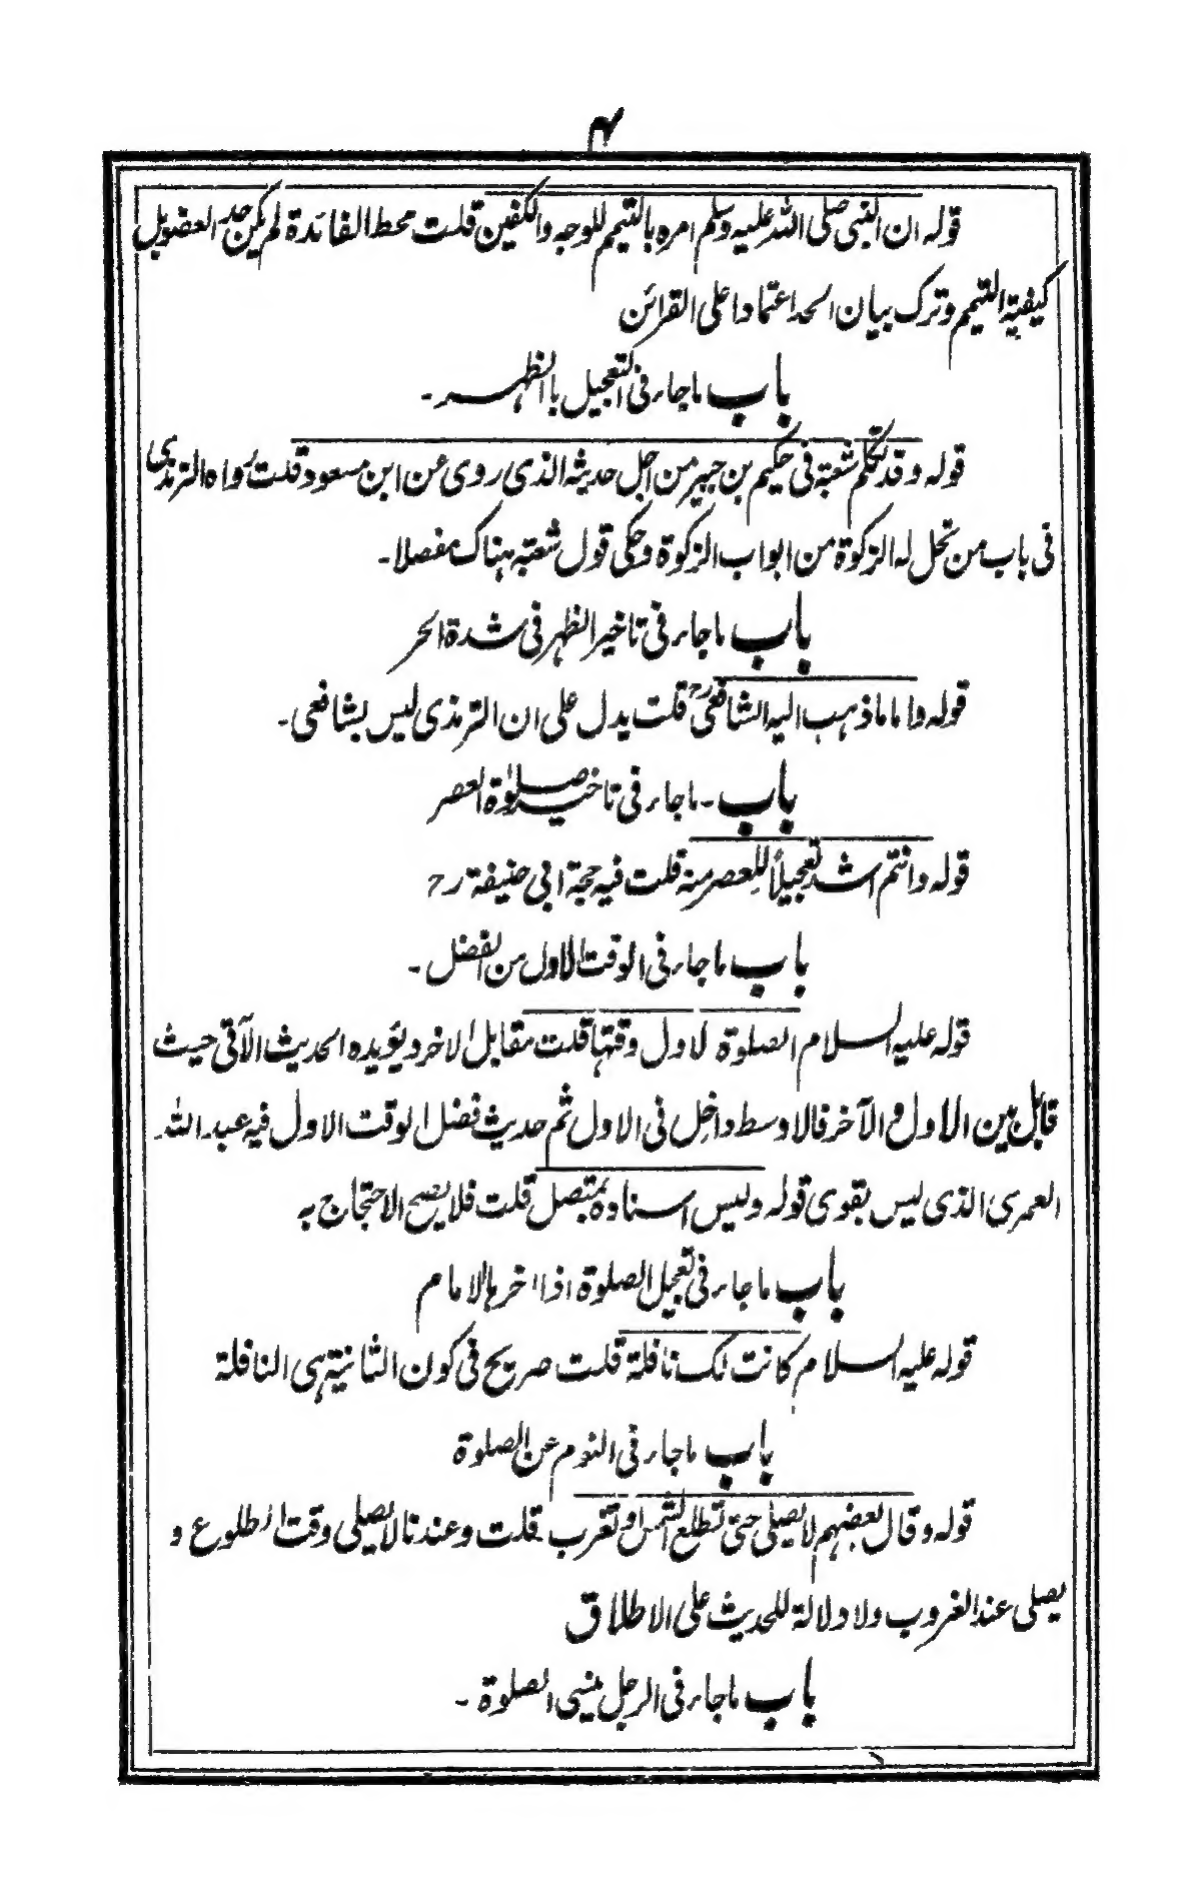 ۴
قوله ان النبي صلى الله عليه وسلم امره بالتيمم للوجه والكفين قلت محط الفائدة لم يكن حد العضو بل
كيفية التيمم وترك بيان الحد اعتمادا على القرائن
باب ماجاء فى التعجيل بالظهر۔
قوله وقد تكلم شعبة فى حكيم بن جبير من اجل حديثه الذى روى عن ابن مسعود قلت رواه الترمذى
فى باب من تحل له الزكوة من ابواب الزكوة وحكى قول شعبة هناك مفصلا۔
باب ماجاء فى تاخير الظهر فى شدة الحر
قوله واما ماذهب اليه الشافعى رح قلت يدل على ان الترمذى ليس بشافعى۔
باب۔ ماجاء فى تاخير صلوٰة العصر
قوله وانتم اشد تعجيلاً للعصر منه قلت فيه حجة ابى حنيفة رح
باب ماجاء فى الوقت الاول من الفضل۔
قوله عليه السلام الصلوة لاول وقتها قلت مقابل الاخر ويؤيده الحديث الآتى حيث
قابل بين الاول والآخر فالاوسط داخل فى الاول ثم حديث فضل الوقت الاول فيه عبد الله۔
العمرى الذى ليس بقوى قوله وليس اسناده بمتصل قلت فلا يصح الاحتجاج به
باب ماجاء فى تعجيل الصلوة اذا اخرها الامام
قوله عليه السلام كانت لك نافلة قلت صريح فى كون الثانية هى النافلة
باب ماجاء فى النوم عن الصلوة
قوله وقال بعضهم لا يصلى حتى تطلع الشمس او تغرب قلت وعندنا لا يصلى وقت الطلوع و
يصلى عند الغروب ولا دلالة للحديث على الاطلاق
باب ماجاء فى الرجل ينسى الصلوة۔